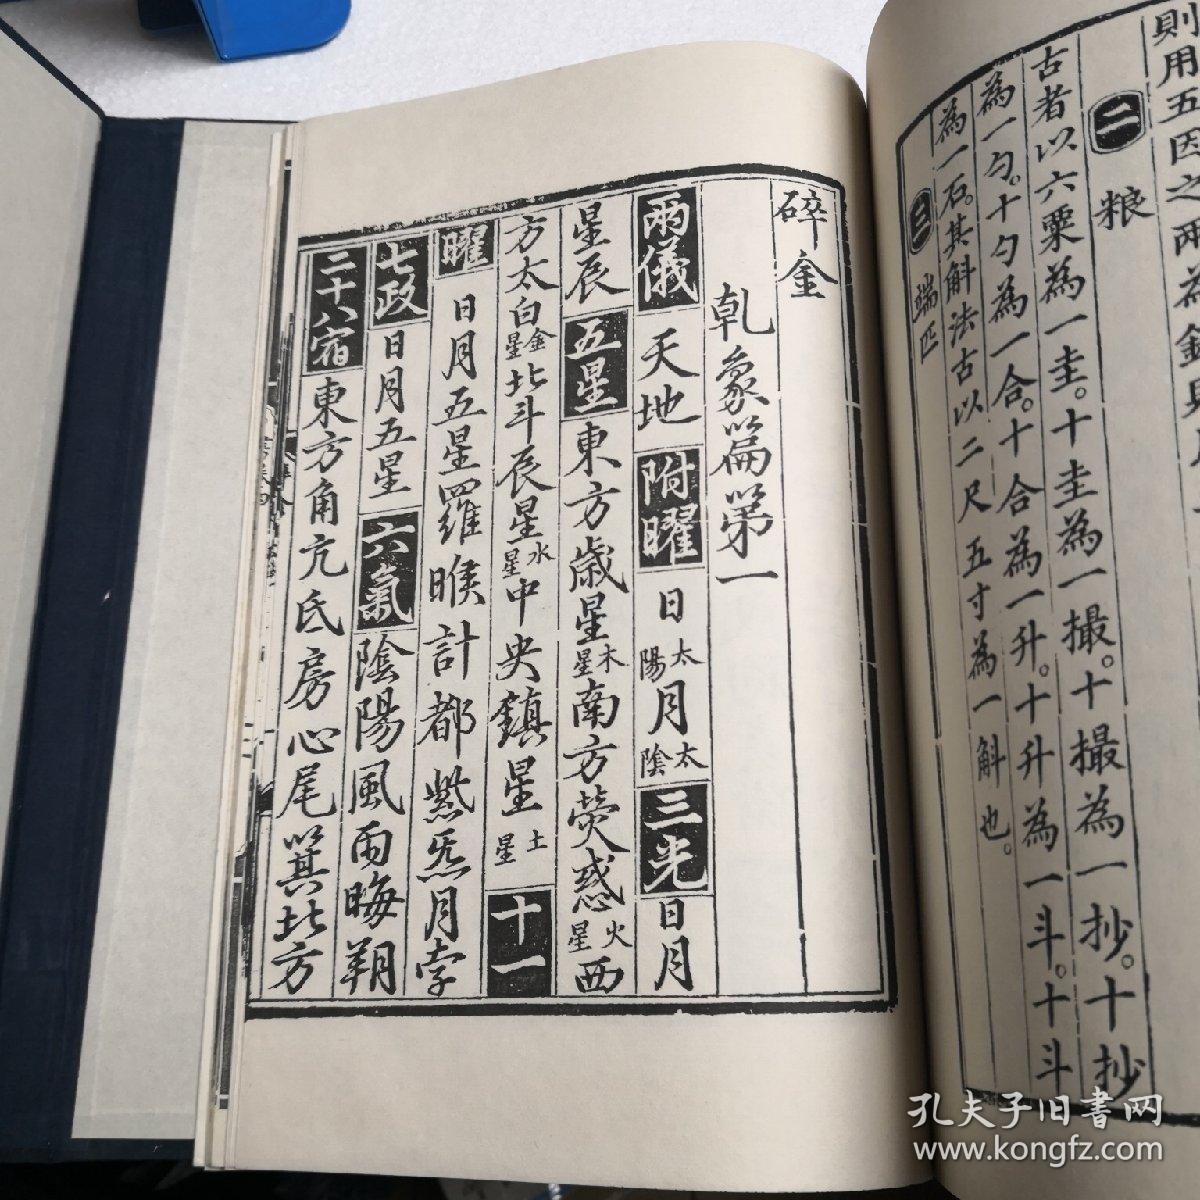 則用五因之兩為
二 粮
古者以六粟為一圭。十圭為一撮。十撮為一抄。十抄
為一勺。十勺為一合。十合為一升。十升為一斗。十斗
為一石。其斛法古以二尺五寸為一斛也。
三 端匹
碎金
乹象篇第一
兩儀 天地 附曜 日太陽月太陰 三光 日月
星辰 五星 東方歲星木星南方熒惑火星西
方太白金星北斗辰星水星中央鎮星土星 十一
曜 日月五星羅睺計都紫炁月孛
七政 日月五星 六氣 陰陽風雨晦朔
二十八宿 東方角亢氐房心尾箕北方
孔夫子旧书网
www.kongfz.com